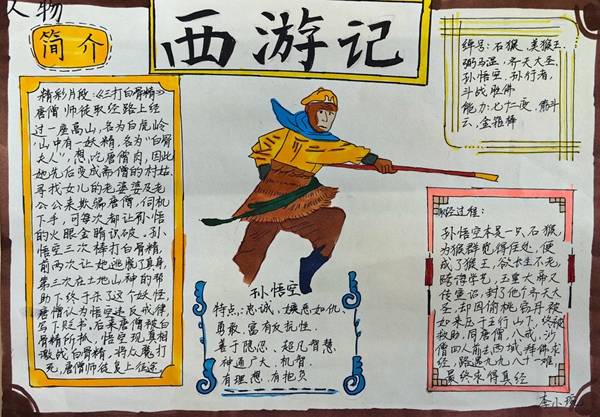 人物
简介
西游记
绰号:石猴、美猴王、
弼马温、齐天大圣、
孙悟空、孙行者、
斗战胜佛
能力:七十二变、筋斗
云,金箍棒
精彩片段:《三打白骨精》
唐僧师徒取经路上经
过一座高山,名为白虎岭
,山中有一妖精,名为“白骨
夫人”,想吃唐僧肉,因此
她先后变成斋僧的村姑、
寻找女儿的老婆婆及老
公公来欺骗唐僧,伺机
下手,可每次都让孙悟
的火眼金睛识破。孙
悟空三次棒打白骨精,
前两次让她逃脱了真身,
第三次在土地山神的帮
助下终于杀了这个妖怪,
唐僧认为悟空违反戒律
写下贬书,后来唐僧被白
骨精所抓,悟空现真相
激战白骨精,将众魔打
死,唐僧师徒复上征途
孙悟空
特点:忠诚、嫉恶如仇、
勇敢、富有反抗性、
善于隐忍、超凡智慧、
神通广大、机智、
有理想、有抱负
取经过程:
孙悟空本是一只石猴,
为猴群觅得住处,便
成了猴王,欲求生不老,
踏得学艺,玉皇大帝又
传圣诏,封了他个齐天大
圣,却因偷桃窃丹被
如来压于五行山下,终被
救助,同唐僧、八戒、沙
僧四人前去西域拜佛求
经,路遇九九八十一难,
最终求得真经
李小